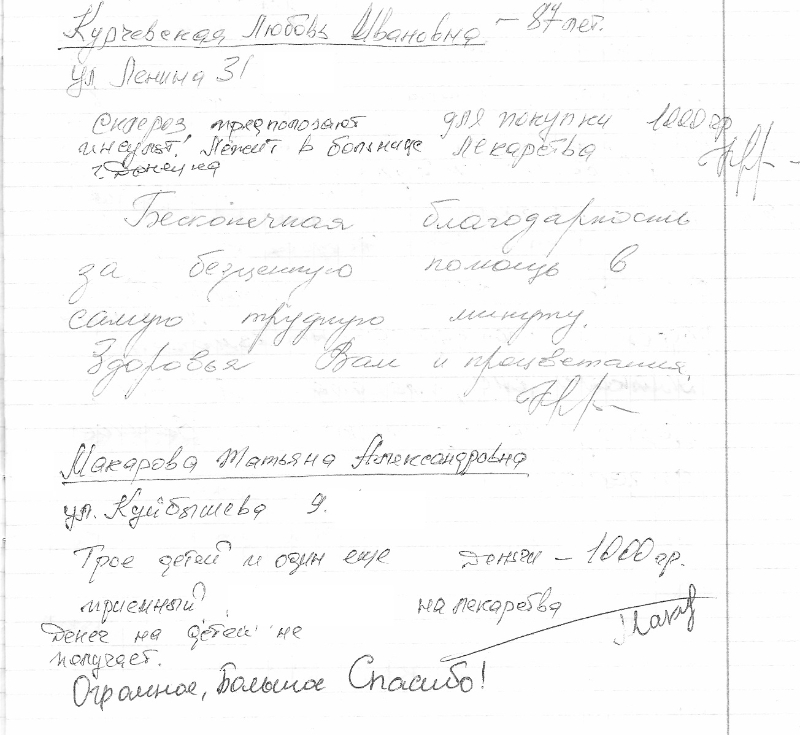 Курчевская Любовь Ивановна – 87 лет.
ул Ленина 31
Склероз, предпологают для покупки 1000 гр
инсульт. Лежит в больнице лекарства
г. Донецка
Бесконечная благодарность
за безценную помощь в
самую трудную минуту.
Здоровья Вам и процветания.
Макарова Татьяна Александровна
ул. Куйбышева 9.
Трое детей и один еще Деньги – 1000 гр.
приемный на лекарства
Денег на детей не
получает.
Огромное, Большое Спасибо!